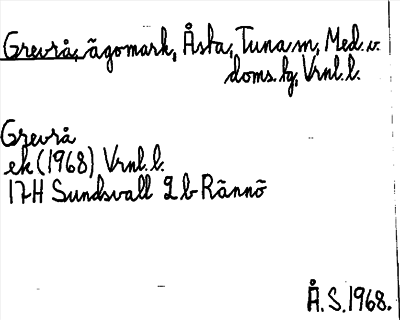 Grevrå, ägomark, Åsta, Tuna sn, Med.v.
doms.lg, Vrnl.l.
Grevrå
ek (1968) Vrnl.l.
17H Sundsvall 2 b Rännö
Å.S. 1968.